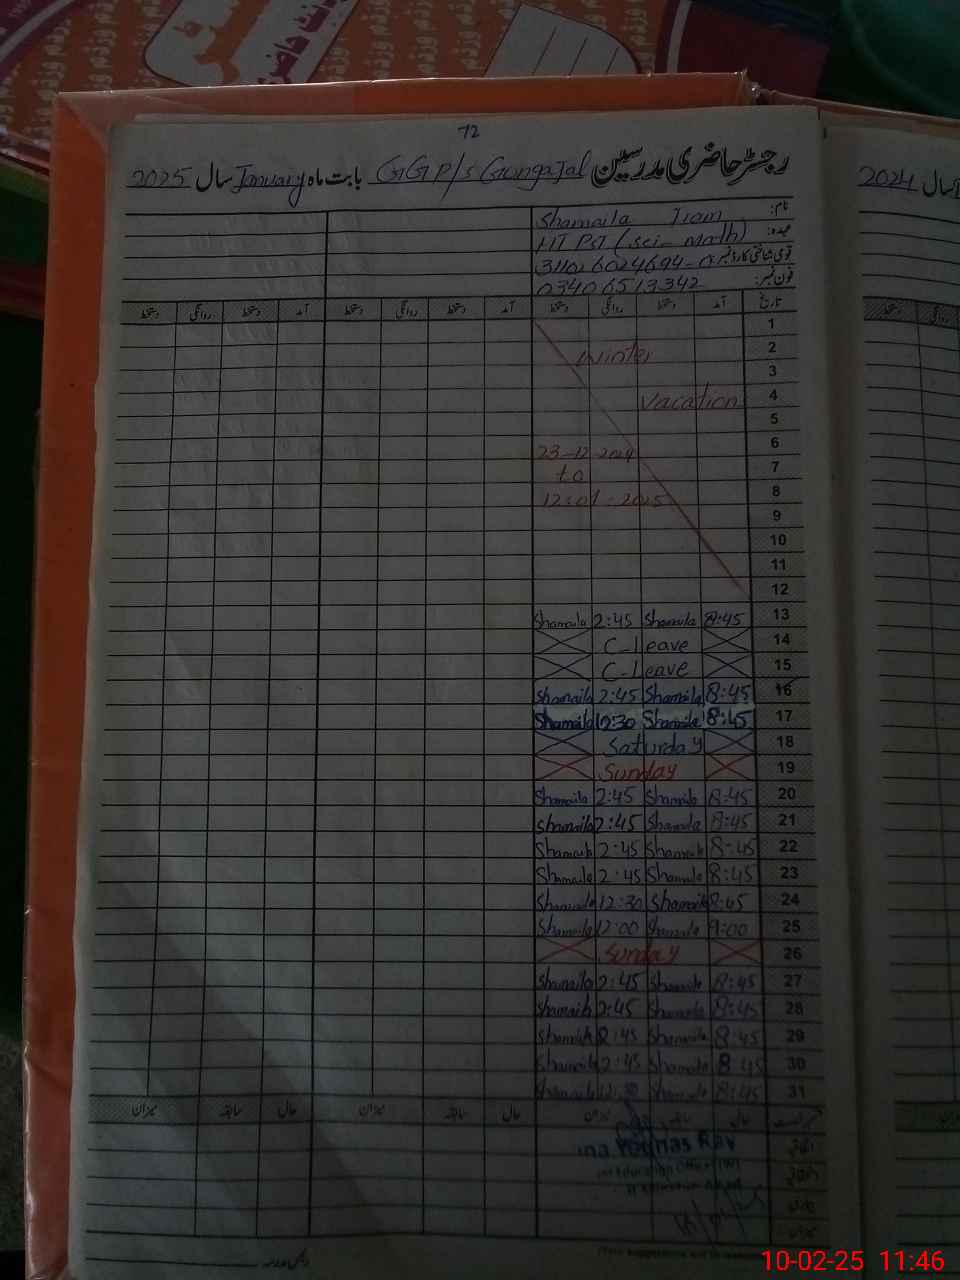 72
رجسٹر حاضری مدرسین GGP/s Gungajal بابت ماہ January سال 2025
نام: Shamaila
عہدہ: HT PST (sci- Math)
قومی شناختی کارڈ نمبر
فون نمبر: 03406513342
تاریخ آمد دستخط روانگی دستخط آمد دستخط روانگی دستخط آمد دستخط روانگی دستخط
1
2 Winter
3
4 Vacation
5
6 23-12-2024
7 to
8 12-01-2025
9
10
11
12
13 8:45 Shamaila 2:45 Shamaila
14 C-Leave
15 C-Leave
16 8:45 Shamaila 2:45 Shamaila
17 8:45 Shamaila 12:30 Shamaila
18 Saturday
19 Sunday
20 8:45 Shamaila 2:45 Shamaila
21 8:45 Shamaila 2:45 Shamaila
22 8:45 Shamaila 2:45 Shamaila
23 8:45 Shamaila 2:45 Shamaila
24 8:45 Shamaila 12:30 Shamaila
25 9:00 Shamaila 12:00 Shamaila
26 Sunday
27 8:45 Shamaila 2:45 Shamaila
28 8:45 Shamaila 2:45 Shamaila
29 8:45 Shamaila :45 Shamaila
30 8:45 Shamaila 2:45 Shamaila
31 8:45 Shamaila 12:30 Shamaila
حال سابقہ میزان حال سابقہ میزان حال سابقہ میزان
2024 سال
10-02-25 11:46